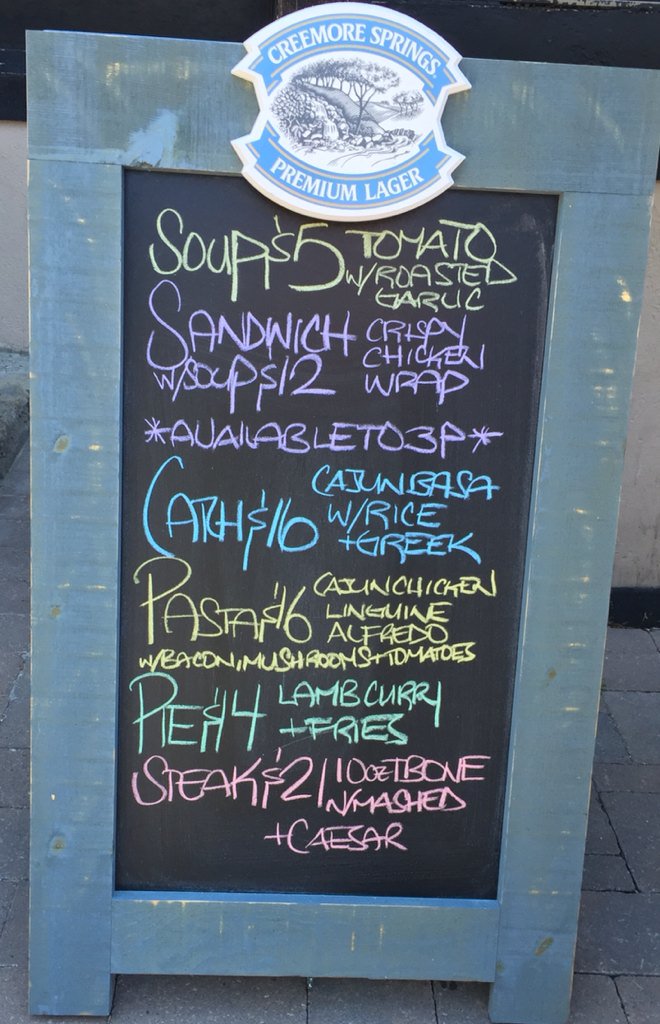 CREEMORE SPRINGS
PREMIUM LAGER
SOUP $5 TOMATO
W/ROASTED
GARLIC
SANDWICH CRISPY
W/SOUP $12 CHICKEN
WRAP
*AVAILABLE TO 3P*
CATCH $16 CAJUN BASA
W/RICE
+GREEK
PASTA $16 CAJUN CHICKEN
LINGUINE
ALFREDO
W/BACON, MUSHROOMS+TOMATOES
PIE $14 LAMB CURRY
+FRIES
STEAK $21 10OZ TBONE
W/MASHED
+CAESAR